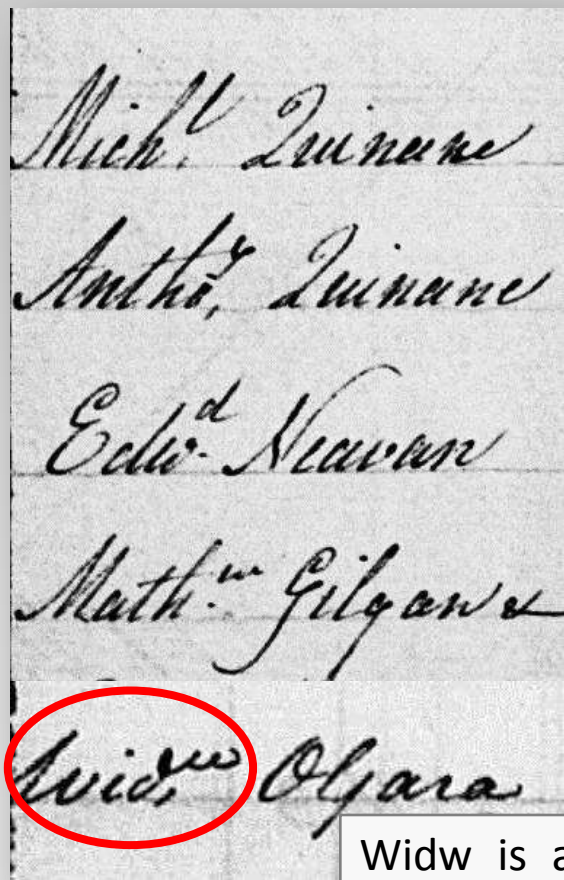 Mich.l Quinane
Antho.y Quinane
Edw.d Neavan
Math.w Gilgan &
Wid.w OGara
Widw is a